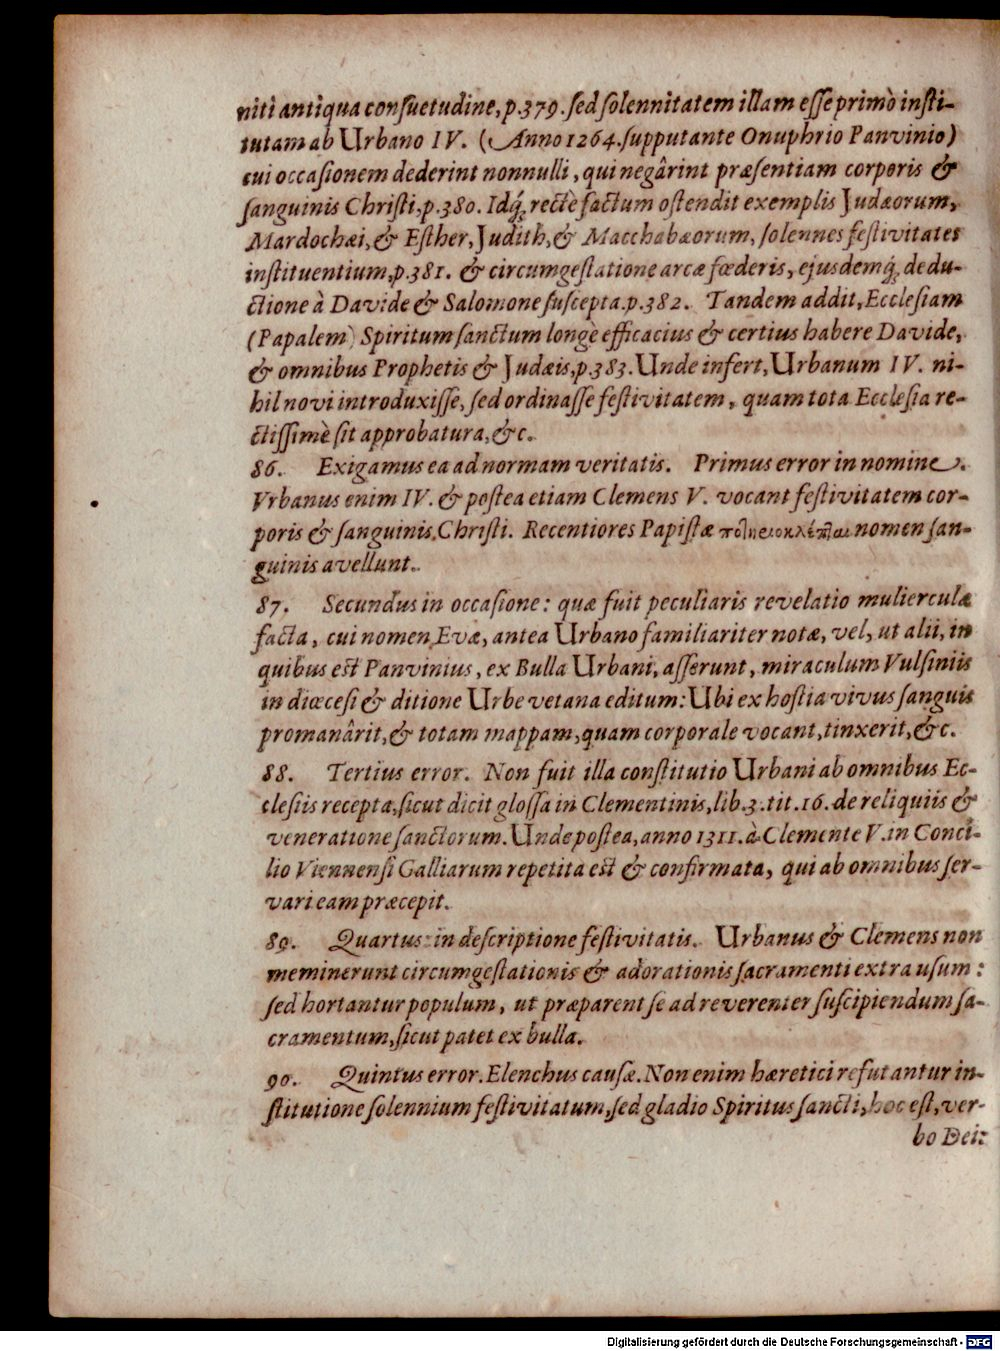 niti antiqua consuetudine, p.379. sed solennitatem illam esse primò insti-
tutam ab Urbano IV. (Anno 1264. supputante Onuphrio Panvinio)
cui occasionem dederint nonnulli, qui negârint præsentiam corporis &
sanguinis Christi, p.380. Idq́; rectè factum ostendit exemplis Judæorum,
Mardochæi, & Esther, Judith, & Macchabæorum, solennes festivitates
instituentium, p.381. & circumgestatione arcæ fœderis, ejusdemq́; dedu-
ctione à Davide & Salomone suscepta. p.382. Tandem addit, Ecclesiam
(Papalem) Spiritum sanctum longè efficacius & certius habere Davide,
& omnibus Prophetis & Judæis, p.383. Unde infert, Urbanum IV. ni-
hil novi introduxisse, sed ordinasse festivitatem, quam tota Ecclesia re-
ctissimè sit approbatura, &c.
86. Exigamus ea ad normam veritatis. Primus error in nomine.
Vrbanus enim IV. & postea etiam Clemens V. vocant festivitatem cor-
poris & sanguinis Christi. Recentiores Papistæ nomen san-
guinis avellunt.
87. Secundus in occasione: quæ fuit peculiaris revelatio mulierculæ
facta, cui nomen Evæ, antea Urbano familiariter notæ, vel, ut alii, in
quibus est Panvinius, ex Bulla Urbani, asserunt, miraculum Vulsiniis
in diœcesi & ditione Urbevetana editum: Ubi ex hostia vivus sanguis
promanârit, & totam mappam, quam corporale vocant, tinxerit, &c.
88. Tertius error. Non fuit illa constitutio Urbani ab omnibus Ec-
clesiis recepta, sicut dicit glossa in Clementinis, lib.3. tit.16. de reliquiis &
veneratione sanctorum. Unde postea, anno 1311. à Clemente V. in Conci-
lio Viennensi Galliarum repetita est & confirmata, qui ab omnibus ser-
vari eam præcepit.
89. Quartus: in descriptione festivitatis. Urbanus & Clemens non
meminerunt circumgestationis & adorationis sacramenti extra usum:
sed hortantur populum, ut præparent se ad reverenter suscipiendum sa-
cramentum, sicut patet ex bulla.
90. Quintus error. Elenchus causæ. Non enim hæretici refutantur in-
stitutione solennium festivitatum, sed gladio Spiritus sancti, hoc est, ver-
bo Dei:
Digitalisierung gefördert durch die Deutsche Forschungsgemeinschaft - DFG